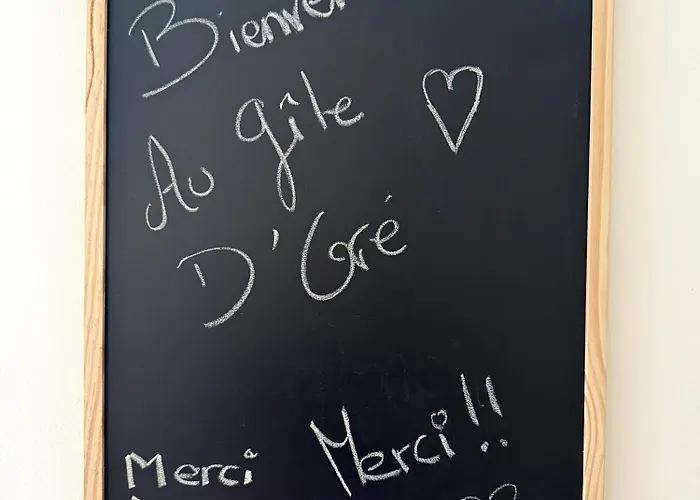 Bienven
Au gîte
D'Gré
Merci Merci!!